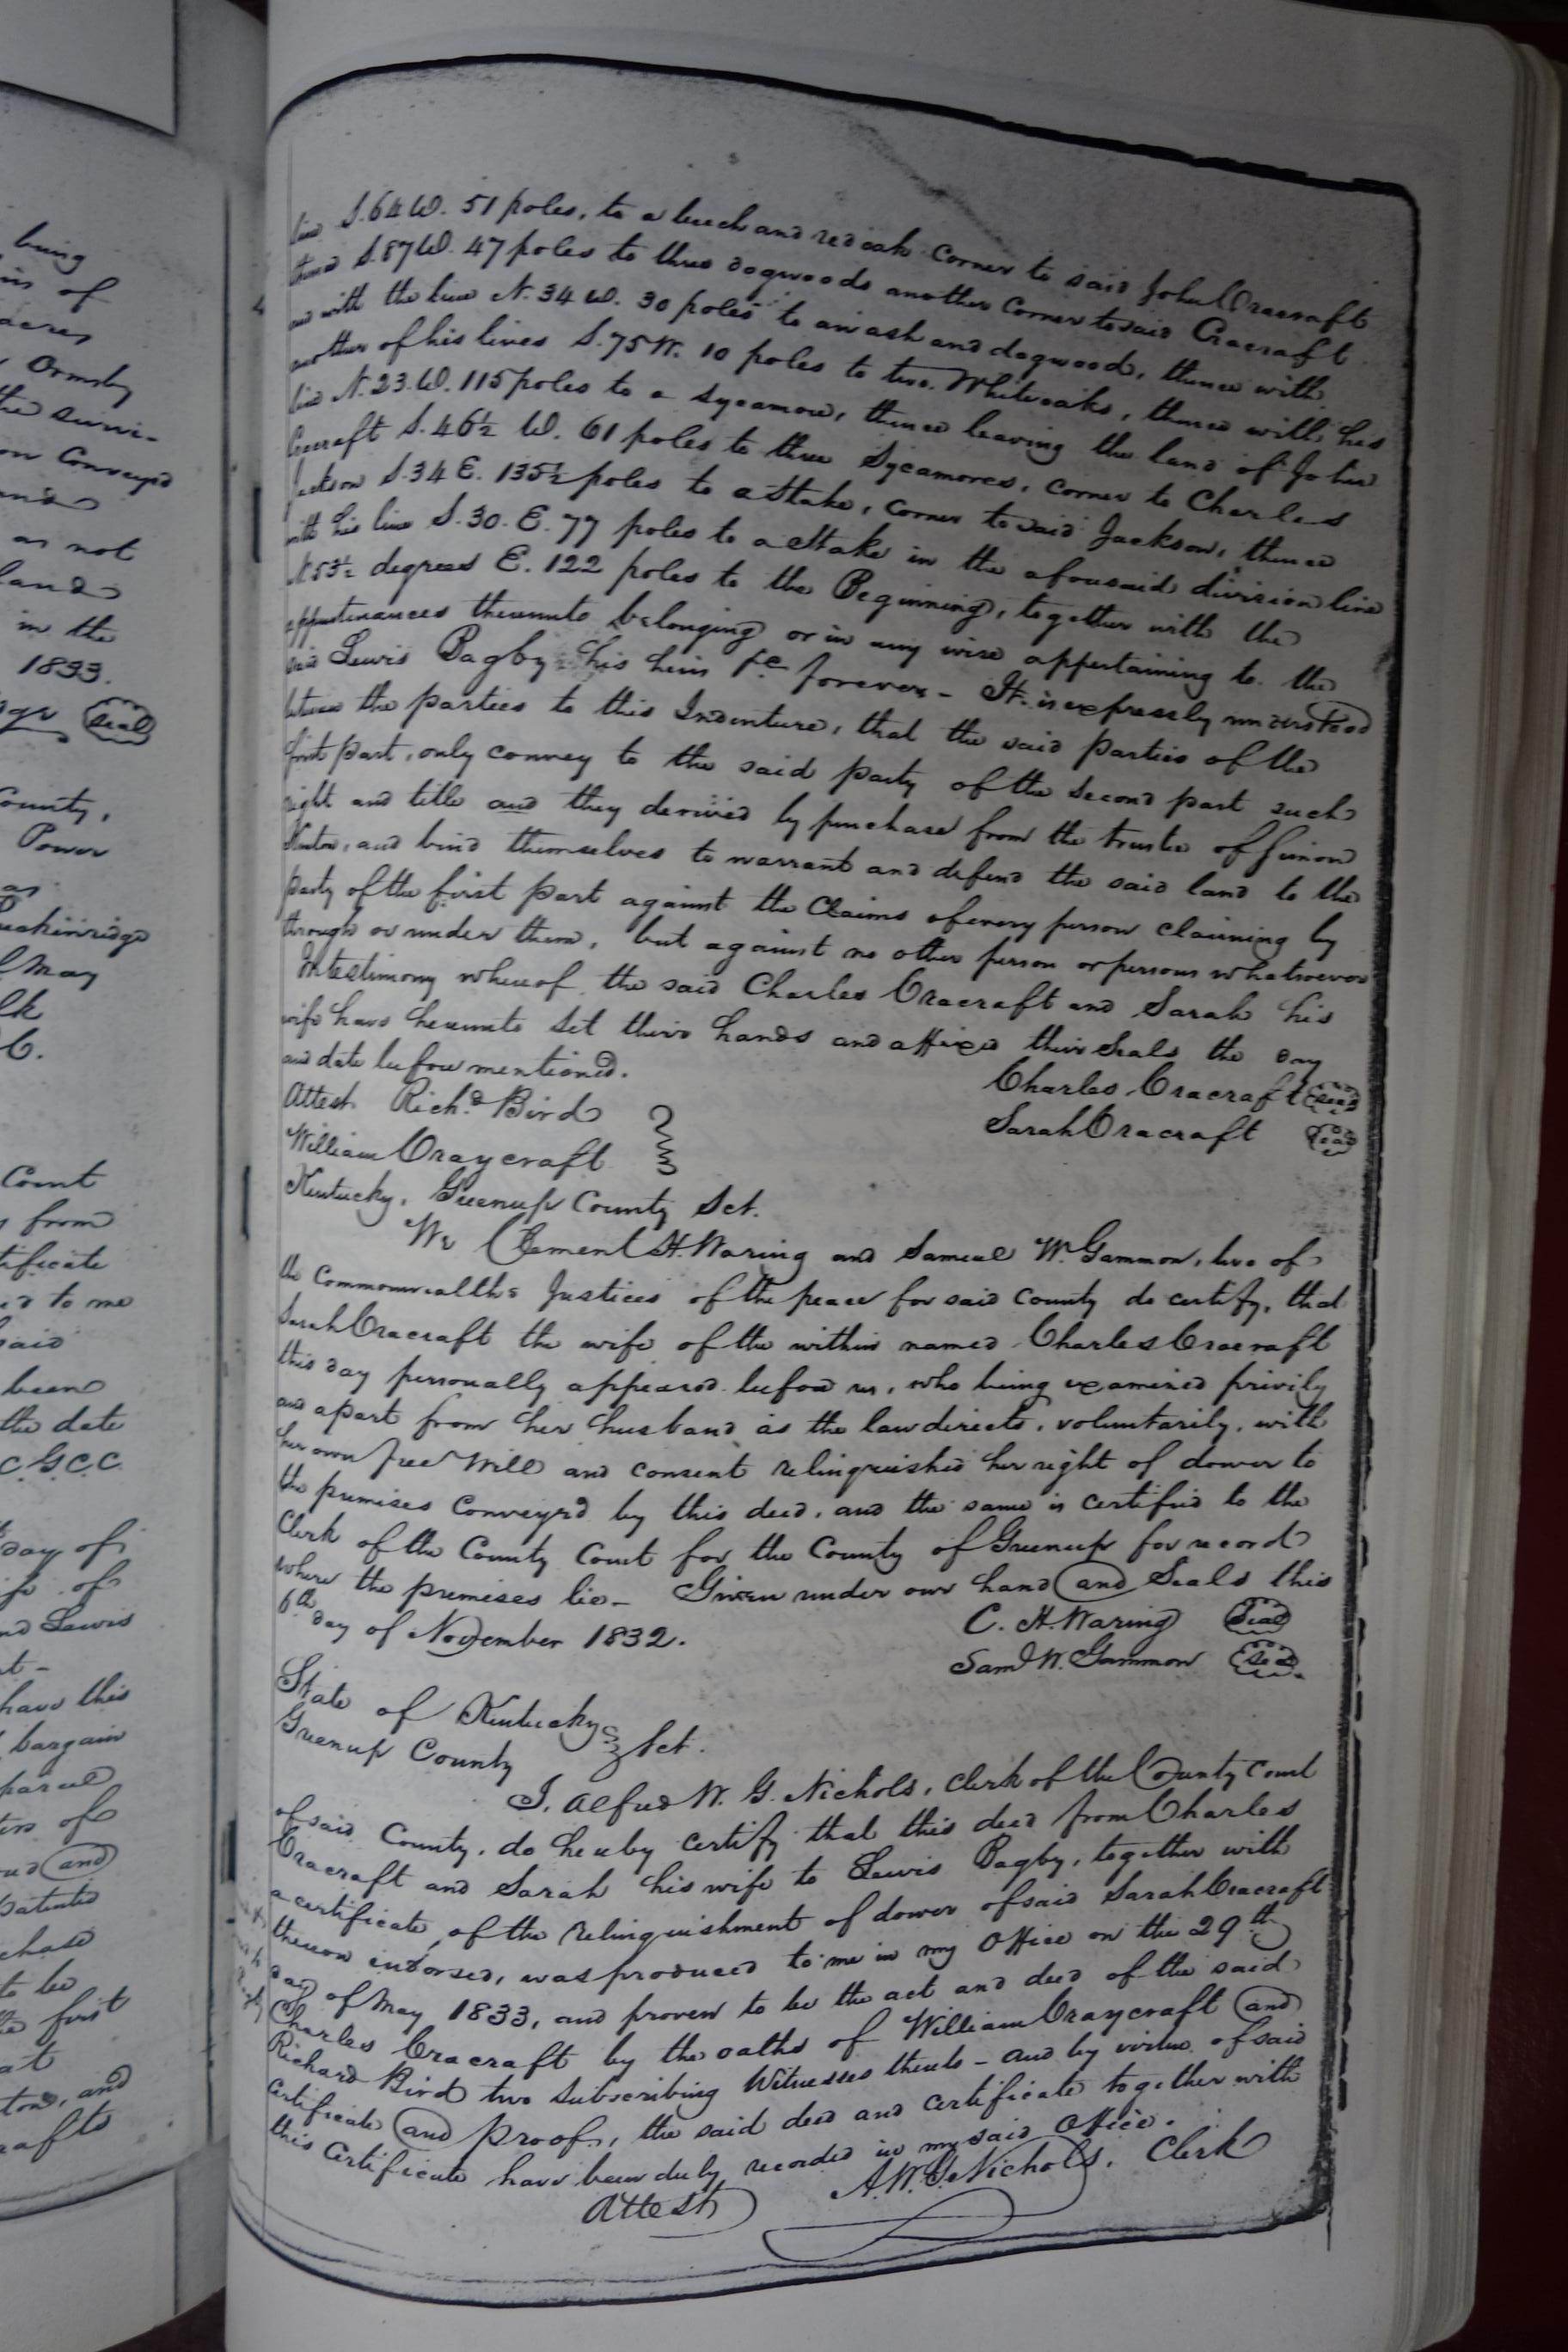 being
of
acres
Ormsby
the survi-
on Conveyed
and
as not
land
in the
1833.
Seal
County,
Power
as
Breckinridge
May
lk
C.
Court
from
certificate
to me
said
been
the date
C.G.C.C.
day of
wife of
and Lewis
have this
bargain
parcel
of
and
patented
purchase
to be
the first
at
ton, and
crafts
line S.64 W. 51 poles, to a beech and red oak corner to said John Cracraft
thence S.87 W. 47 poles to three dogwoods another corner to said Cracraft
and with the line N. 34 W. 30 poles to an ash and dogwood, thence with
another of his lines S. 75 W. 10 poles to two Whiteoaks, thence with his
line N. 23. W. 115 poles to a sycamore, thence leaving the land of John
Cracraft S. 46½ W. 61 poles to three Sycamores, corner to Charles
Jackson S. 34 E. 135½ poles to a Stake, corner to said Jackson, thence
with his line S. 30. E. 77 poles to a Stake in the aforesaid division line
N. 53½ degrees E. 122 poles to the Beginning, together with the
appurtenances thereunto belonging or in any wise appertaining to the
said Lewis Bagby his heirs &c forever - It is expressly understood
between the parties to this Indenture, that the said parties of the
first part, only convey to the said party of the second part such
right and title and they derived by purchase from the trustee of Simon
Kenton, and bind themselves to warrant and defend the said land to the
party of the first part against the Claims of every person claiming by
through or under them, but against no other person or persons whatsoever
In testimony whereof the said Charles Cracraft and Sarah his
wife have hereunto set their hands and affixed their Seals the day
and date before mentioned.
Charles Cracraft Seal
Attest Richd. Bird
Sarah Cracraft Seal
William Craycraft
Kentucky, Greenup County Sct.
We Clement H. Waring and Samuel W. Gammon, two of
the Commonwealths Justices of the peace for said County do certify, that
Sarah Cracraft the wife of the within named Charles Cracraft
this day personally appeared before us, who being examined privily
and apart from her husband as the law directs, voluntarily, with
her own free Will and consent relinquished her right of dower to
the premises Conveyed by this deed, and the same is certified to the
Clerk of the County Court for the County of Greenup for record
where the premises lie - Given under our hand and Seals this
6th day of November 1832.
C. H. Waring Seal
Saml W. Gammon Seal
State of Kentucky
Greenup County Sct.
I, Alfred W. G. Nichols, Clerk of the County Court
of said County, do hereby certify that this deed from Charles
Cracraft and Sarah his wife to Lewis Bagby, together with
a certificate of the relinquishment of dower of said Sarah Cracraft
thereon endorsed, was produced to me in my Office on the 29th
day of May 1833, and proven to be the act and deed of the said
Charles Cracraft by the oaths of William Craycraft and
Richard Bird two Subscribing Witnesses thereto - and by virtue of said
Certificate and Proof, the said deed and certificate together with
this Certificate have been duly recorded in my said Office.
Attest A. W. G. Nichols, Clerk